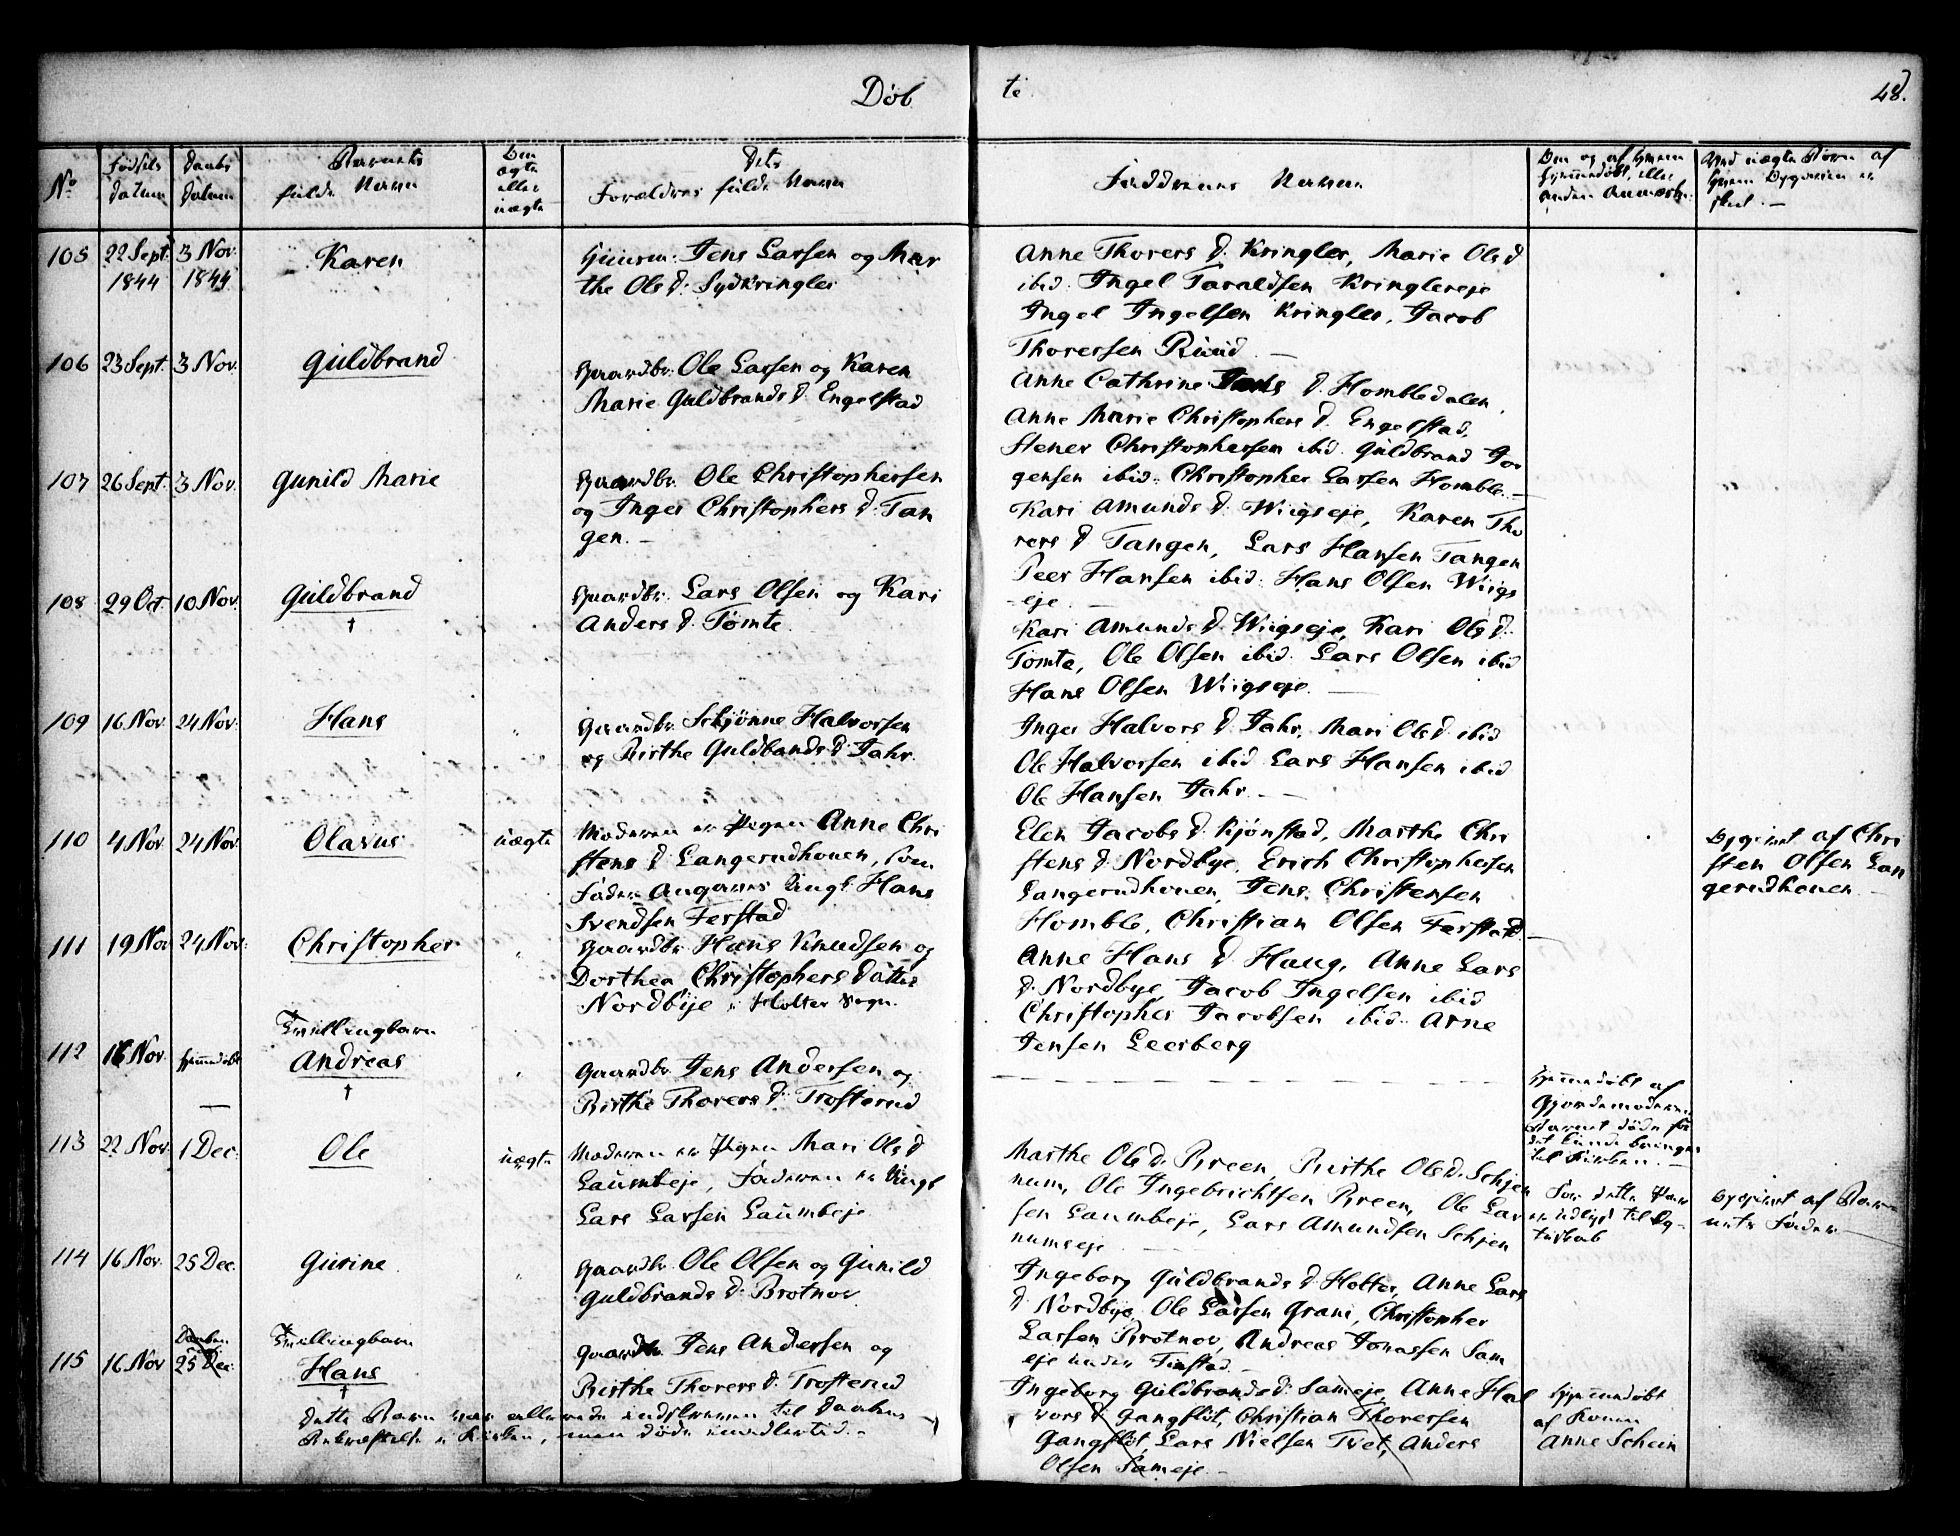 Døb te 48.
No Fødsels Datum Daabs Datum Barnets fulde Navn Om ægte eller uægte Dets Forældres fulde Navn Faddernes Navne
105 22 Sept. 1844 3 Nov. 1844 Karen
Jens Larsen og Mar
the Olsd. Sydkringler
Anne Thorers d. Kringler, Marie Olsd
ibid. Ingel Taraldsen Kringlereje
Ingel Ingelsen Kringler, Jacob
Thorersen Ruud. —
106 23 Sept. 3 Nov. Guldbrand
Gaardbr. Ole Larsen og Karen
Marie Guldbrands d. Engelstad
Anne Cathrine Jens d. Hombledalen,
Anne Marie Christophers d. Engelstad,
Stener Christophersen ibid. Guldbrand Jør
gensen ibid. Christopher Larsen Homble. —
107 26 Sept. 3 Nov. Gunild Marie
Gaardbr. Ole Christophersen
og Inger Christophers d. Tan
gen. —
Kari Amunds d. Wiigseje, Karen Tho
rers d Tangen, Lars Hansen Tangen
Peer Hansen ibid. Hans Olsen Wiigs
eje. —
108 29 Oct. 10 Nov. Guldbrand †
Gaardbr. Lars Olsen og Kari
Anders d. Tømte.
Kari Amunds d. Wiigseje, Kari Ols d.
Tømte, Ole Olsen ibid. Lars Olsen ibid
Hans Olsen Wiigseje. —
109 16 Nov. 24 Nov. Hans „
Gaardbr. Schjønne Halvorsen
og Birthe Guldbands d. Jahr.
Inger Halvors d. Jahr, Mari Olsd. ibid
Ole Halvorsen ibid. Lars Hansen ibid
Ole Hansen Jahr. —
110 4 Nov. 24 Nov. Olavus uægte
Moderen er Pigen Anne Chri
stens d. Langerudhouen, som
Fader angaves Ungk. Hans
Svendsen Ferstad
Elen Jacobs d. Kjønstad, Marthe Chri
stens d. Nordbye, Erich Christophersen
Langerudhouen, Jens Christensen
Homble, Christian Olsen Ferstad. —
af Chri
sten Olsen Lan
gerudhouen —
111 19 Nov 24 Nov. Christopher „
Gaardbr. Hans Knudsen og
Dorthea Christophers datter
Nordbye i Holter Sogn.
Anne Hans d. Haug, Anne Lars
d. Nordbye, Jacob Ingelsen ibid
Christopher Jacobsen ibid. Arne
Jensen Leerberg
112 16 Nov. hjemmedøbt — Tvillingbarn Andreas † „
Gaardbr. Jens Andersen og
Birthe Thorers d. Trosterud
Hjemmedøbt af
Gjordemoderen
Barnet døde før
det kunde bringes
til Kirken. —
113 22 Nov. 1 Dec. Ole uægte
Moderen er Pigen Mari Ols d
Laumbeje, Faderen er Ungk
Lars Larsen Laumbeje
Marthe Ols d. Breen, Birthe Ols d. Schjen
num, Ole Ingebrichtsen Breen, Ole Lar
sen Laumbeje, Lars Amundsen Schjen
numseje. —
For dette Par
er udlyst til Æg-
teskab
af Bar-
nets Fader —
114 16 Nov. 25 Dec. Gurine „
Gaardbr. Ole Olsen og Gunild
Guldbrands d. Brotnov
Ingeborg Guldbrands d. Holter, Anne Lars
d. Nordbye, Ole Larsen Grani, Christopher
Larsen Brotnov, Andreas Jonassen Sam
eje under Finstad. —
115 16 Nov Daaben 25 Dec. Tvillingbarn Hans †
Gaardbr. Jens Andersen og
Birthe Thorers d. Trosterud
Dette Barn var allerede indskreven til Daabens
Bekræftelse i Kirken, men døde imidlertid. —
Ingeborg Guldbrandsd. Sameje, Anne Hal
vors d. Gangfløt, Christian Thorersen
Gangfløt, Lars Nielsen Tvet, Anders
Olsen Sameje. —
Hjemmedøbt
af Konen
Anne Schein